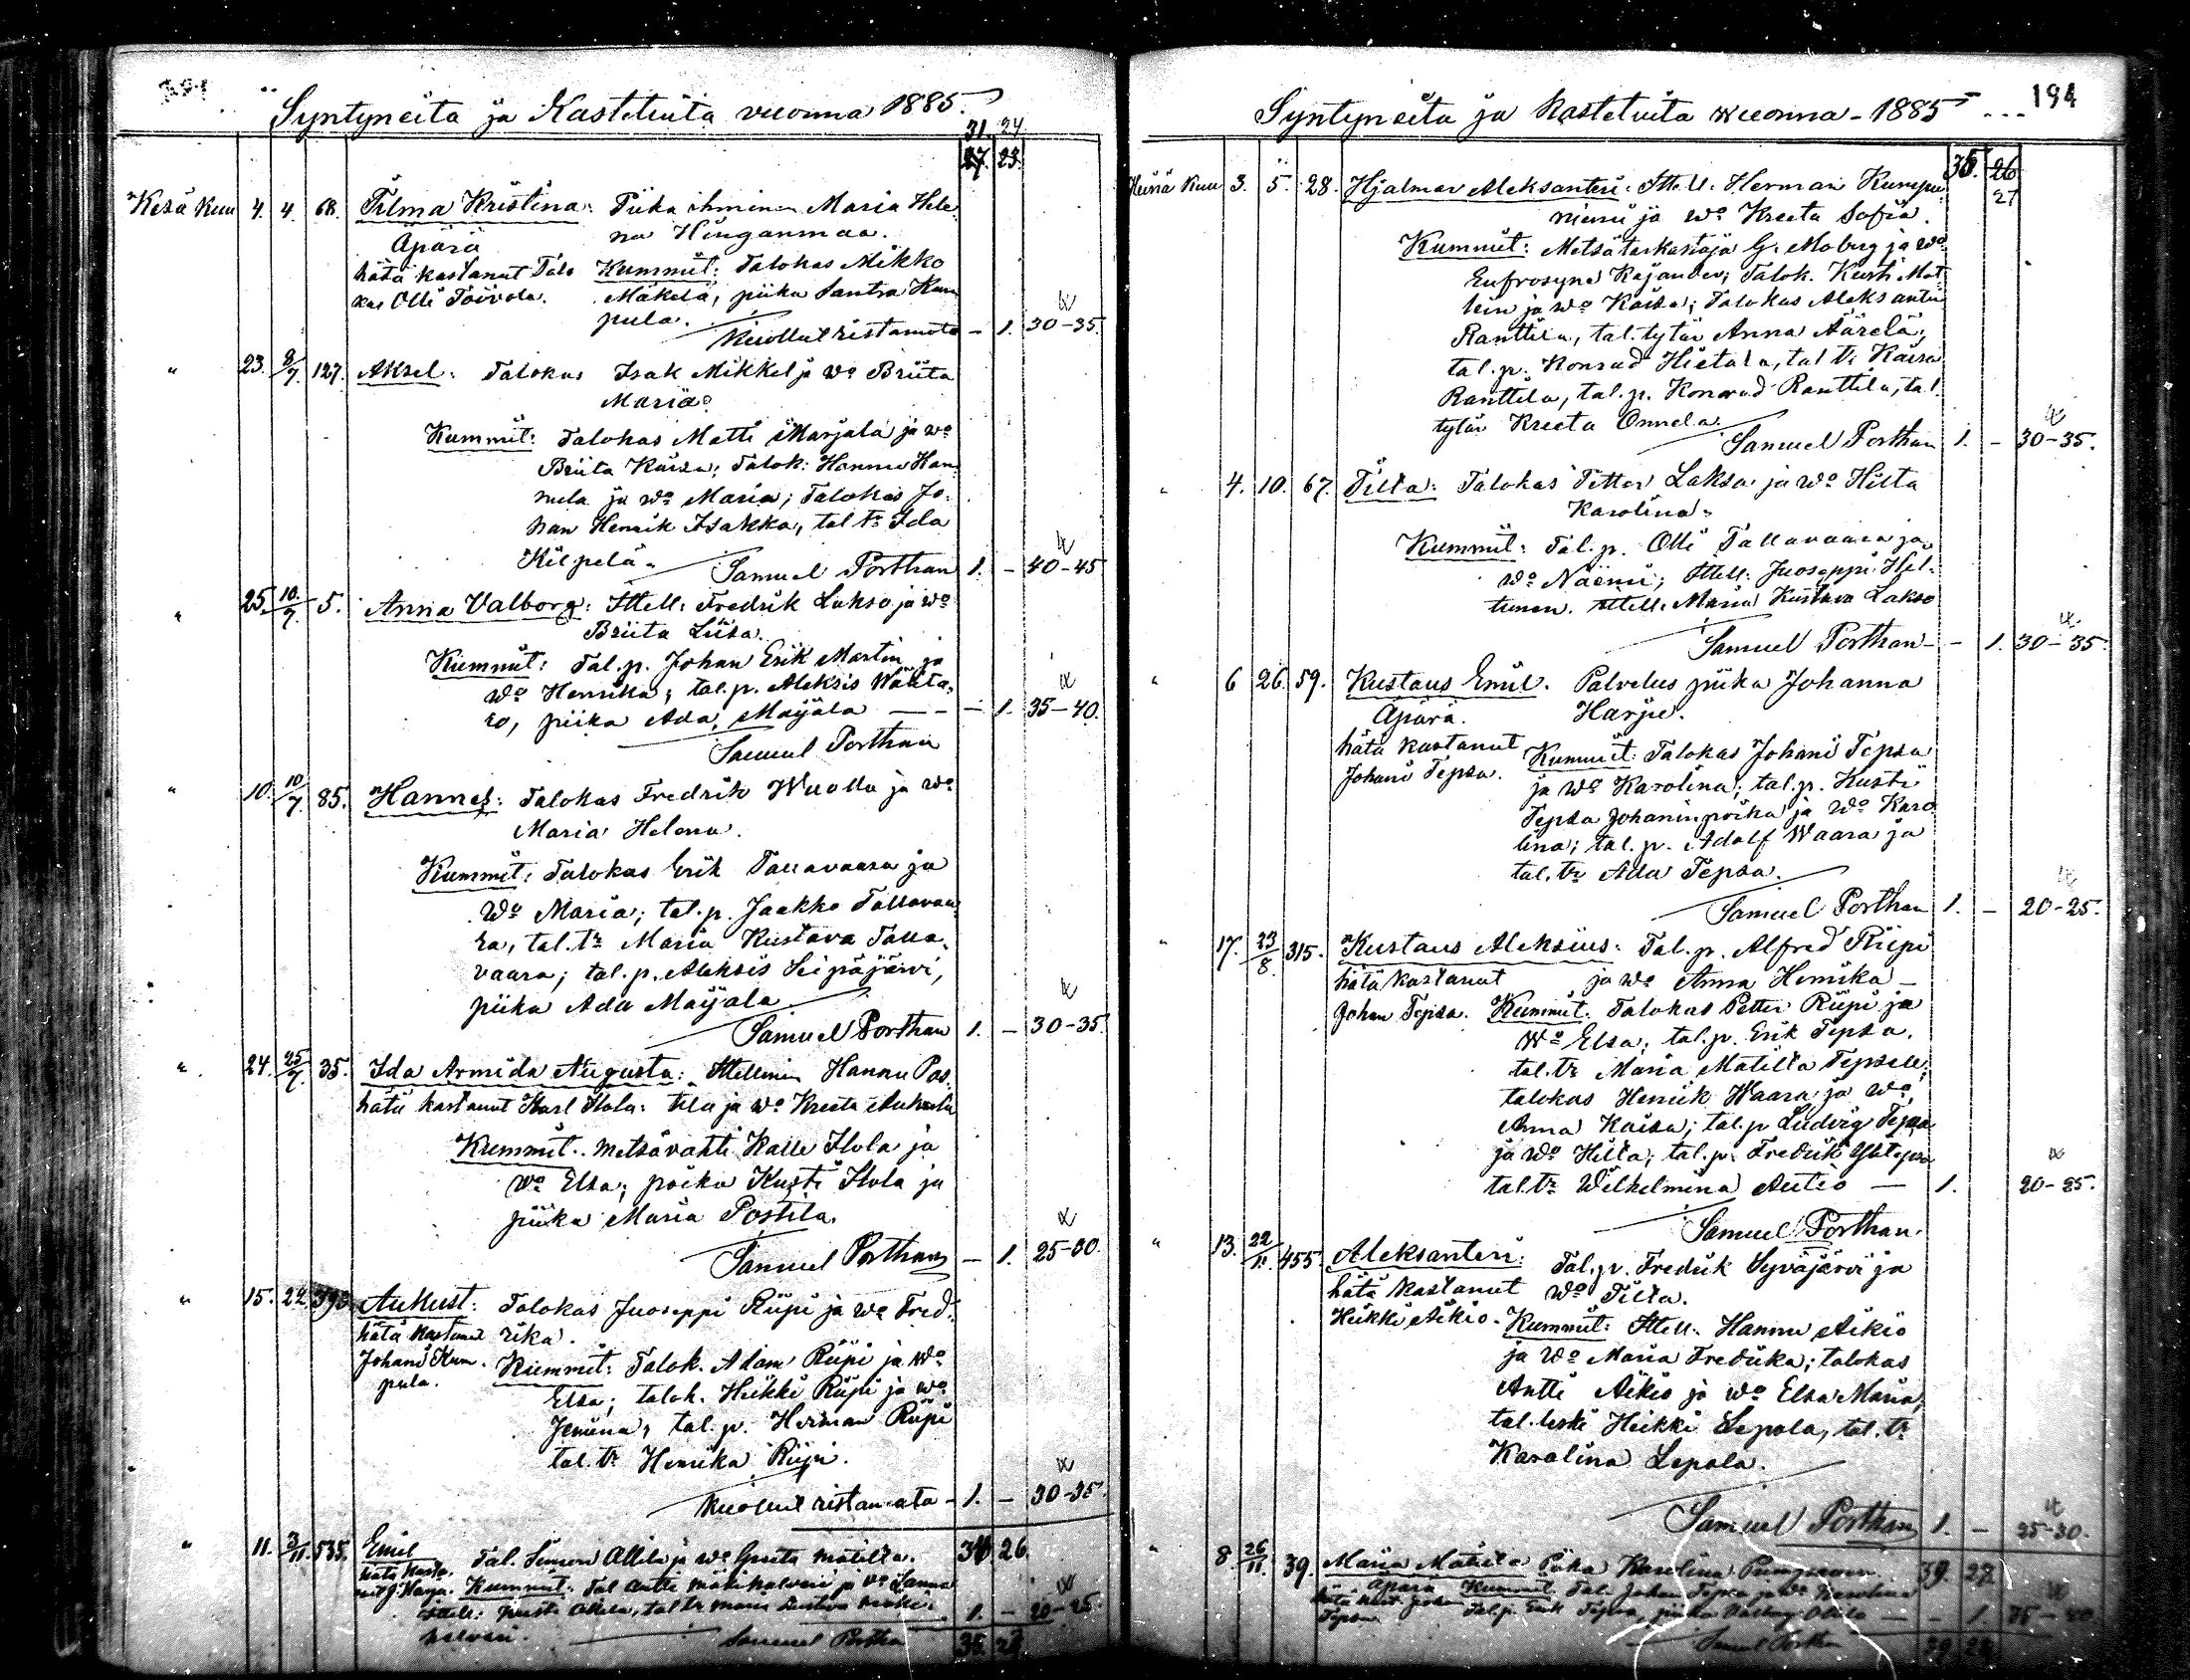 Syntyneitä ja Kastetuita vuonna 1885.
31. 24
27. 23.
Kesä Kuu 4. 4. 68. Tilma Kristina: Piika ihminen Maria Hele
Äpärä na Hinganmaa.
hätä kastanut Talo Kummit: Talokas Mikko
kas Olli Toivola. Mäkelä, piika Santra Kum
pula.
Kuollut ristamata - 1. 30-35.
" 23. 8/7. 127. Aksel: Talokas Isak Mikkel ja Wo Briita
Maria.
Kummit: Talokas Matti Marjala ja wo
Briita Kaisa; Talok: Hannu Han
nula ja wo Maria; Talokas Jo-
han Henrik Isakka, tal tr Ida
Kilpelä.
Samuel Porthan 1. - 40-45
" 25. 10/7 5. Anna Valborg: Ittell: Fredrik Lakso ja wo
Briita Liisa.
Kummit: Tal. p. Johan Erik Martin ja
Wo Henrika; tal. p. Aleksis
ro, piika Ada Maijala - 1. 35-40.
Samuel Porthan
" 10. 10/7 85. Hannes: Talokas Fredrik Wuollo ja wo
Maria Helena.
Kummit: Talokas Erik Tallavaara ja
Wo Maria; tal. p. Jaakko Tallavaa
ra, tal. tr Maria Kustava Talla-
vaara; tal. p. Aleksis Seipäjärvi,
piika Ada Maijala
Samuel Porthan 1. - 30-35.
" 24. 25/7. 35. Ida Armida Augusta: Ittellinen Hannu Pos
hätä kastanut Karl Ilola: tila ja wo Kreeta
Kummit: metsävahti Kalle Ilola ja
wo Elsa; poika Kusti Ilola ja
piika Maria Postila.
Samuel Porthan - 1. 25-30.
" 15. 22 Aukust: Talokas Juoseppi Riipi ja wo Fred-
hätä kastanut rika.
Johani Kum. Kummit: Talok. Adam Riipi ja wo
pula. Elsa; talok. Heikki Riipi ja wo
tal. p. Herman Riipi
tal. tr Henrika Riipi.
Kuollut ristamata - 1. - 30-35.
" 11. 3/11. 535. Emil Tal. Simon Ollila ja wo Greeta Matilta. 34 26.
Kummit: Tal Antti ja wo Sanna
Kusti Ollila, tal tr Maria Kustava 1. - 20-25.
Samuel Porthan 35. 26
Syntyneitä ja kastetuita wuonna - 1885 194
35. 26
27
Heinä Kuu 3. 5. 28. Hjalmar Aleksanteri: Ittell: Herman Kumpu
niemi ja wo Kreeta Sofia.
Kummit: Metsätarkastaja G. Moberg ja wo
Eufrosyne Kajander; Talok. Kusti Mat
hein ja wo Kaisa; Talokas Aleksanteri
Ranttila, tal. tytär Anna Äärelä;
tal. p. Konrad Hietala, tal tr Kaisa
Ranttila, tal. p. Konrad Ranttila, tal.
tytär Kreeta Onnela.
Samuel Porthan 1. - 30-35.
" 4. 10. 67. Tilta: Talokas Petter Lakso ja wo Hilta
Karolina.
Kummit: Tal. p. Olli Tallavaara ja
wo Näemi; Ittell: Juoseppi Hel-
tunen. Ittell. Maria Kustava Lakso
Samuel Porthan - - 1. 30-35.
" 6 26. 59. Kustaus Emil. Palvelus piika Johanna
Äpärä. Harju.
hätä kastanut Kummit: Talokas Johani Tepsa
Johani Tepsa. ja wo Karolina; tal. p. Kusti
Tepsa Johanin poika ja wo Karo
lina; tal. p. Adolf Waara ja
tal. tr Ada Tepsa.
Samuel Porthan 1. - 20-25.
" 17. 23/8. 315. Kustaus Aleksius: Tal. p. Alfred Riipi
hätä kastanut ja wo Anna Henrika -
Johan Tepsa. Kummit: Talokas Petter Riipi ja
Wo Elsa; tal. p. Erik Tepsa,
tal. tr Maria Matilta Tepsell;
talokas Henrik Waara ja wo
Anna Kaisa; tal. p Ludvig Tepsa
ja wo Hilta; tal. p. Fredrik
tal. tr Wilhelmina Autio - 1. 20-25.
Samuel Porthan.
" 13. 22/11. 455. Aleksanteri: Tal. p. Fredrik Syväjärvi ja
hätä kastanut wo Tilta.
Heikki Aikio. Kummit: Ittell. Hannu Aikio
ja wo Maria Fredrika; talokas
Antti Aikio ja wo Elsa Maria,
tal. leski Heikki Lepola, tal. tr
Karolina Lepola.
Samuel Porthan 1. -
" 8. 26/11. 39. Maria Matilta Piika Karolina 39. 27
Äpärä Kummit: Tal. Johan Tepsa ja wo Karolina
Tepsa. Tal. p. Erik Tepsa, piika - 1.
Samuel Porthan